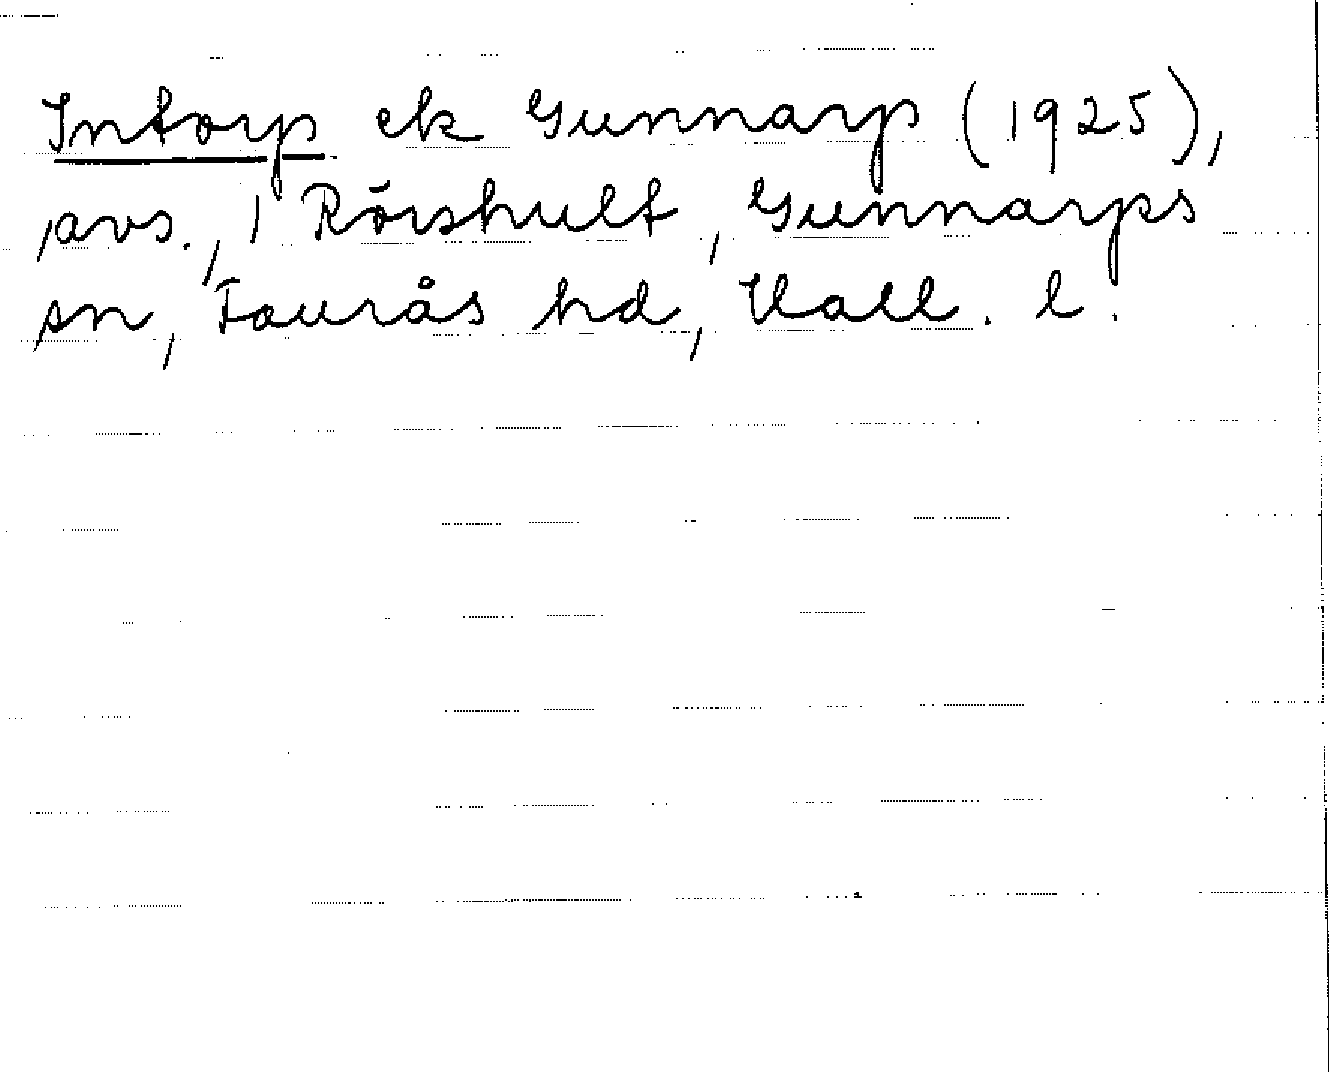 Intorp ek Gunnarp (1925),
avs., 1 Rörshult, Gunnarps
sn, Faurås hd, Hall. l.